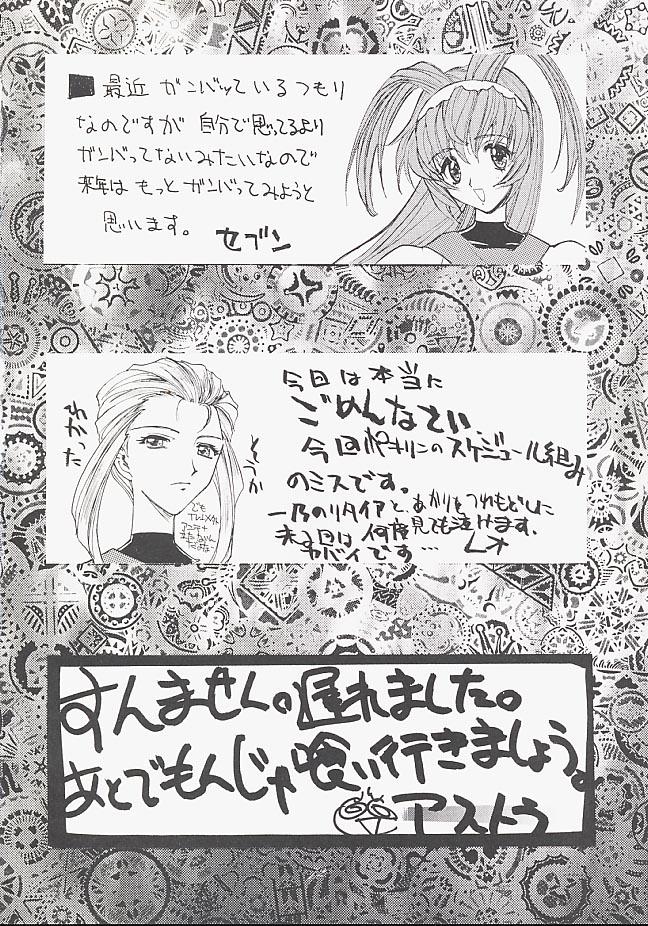 最近 ガンバッているつもり
なのですが 自分で思ってるより
ガンバってないみたいなので
来年は もっと ガンバってみようと
思います。 セブン
今回は本当に
ごめんなさい
今回パキリンのスケジュール組み
のミスです。
一乃のリタイアと、あかりをつれもどしに
来る回は 何度見ても泣けます。
ヤバイです…
でも
すんません。遅れました。
あとでもんじゃ喰い行きましょう。
アストラ